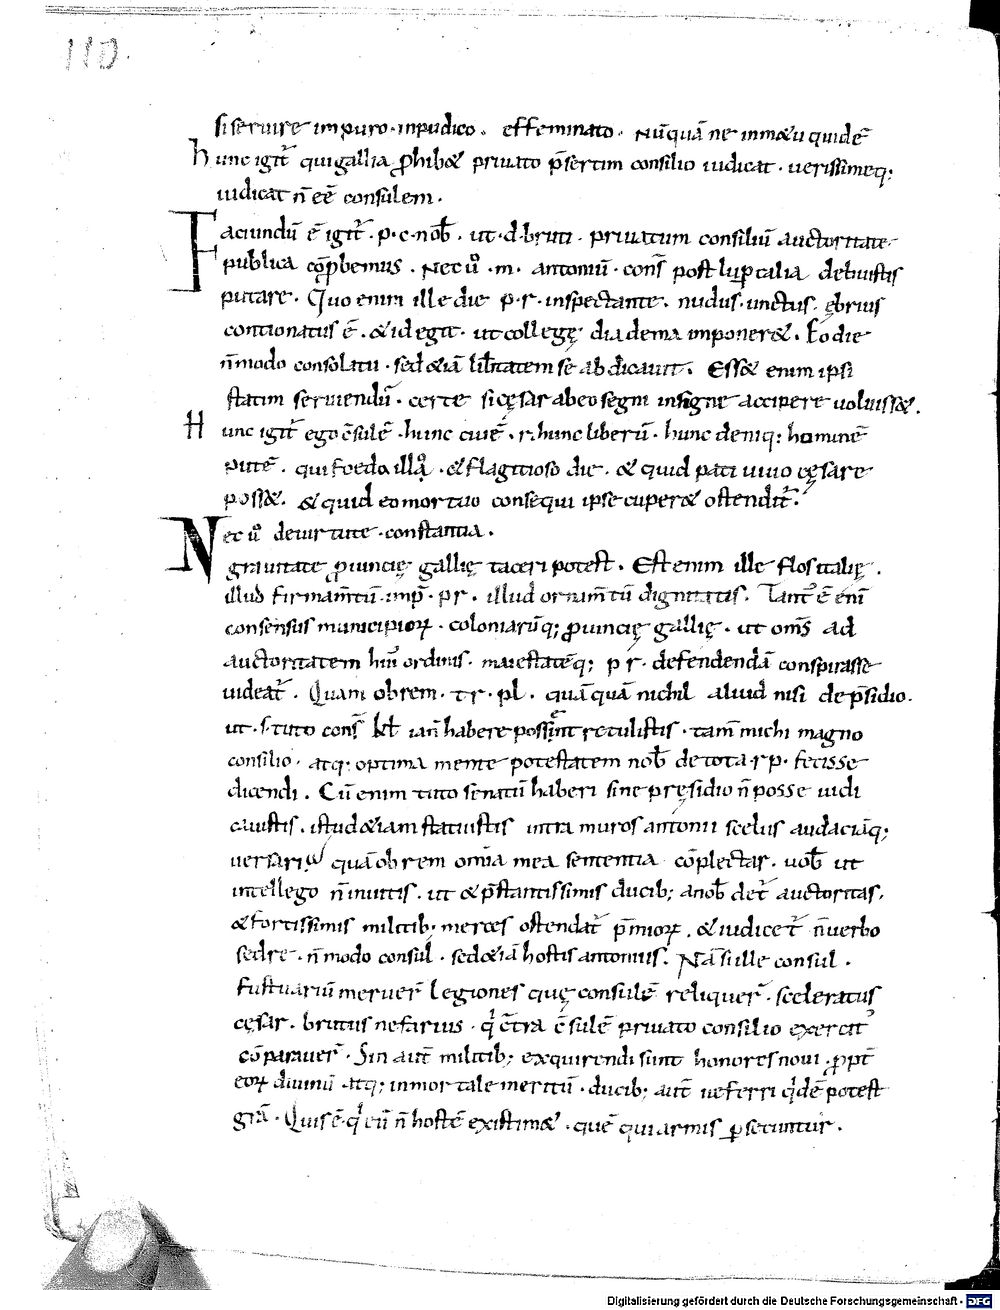 110.
si seruire impuro · inpudico · effeminato · Nūquā ne in m&u quidē
hunc igit̄ qui gallia p̄hib& priuato p̄sertim consilio iudicat · uerissimeq;
iudicat n̄ eē consulem ·
Faciundū ē igit̄ · p · c · nob̄ · ut · d · bruti · priuatum consiliū auctoritate
publica cōp̄bemus · Nec ů · m · antoniū · cons̄ post lup̄calia debuistis
putare · Quo enim ille die · p · r · inspectante · nudus · unctus · ębrius
contionatus ē · & id egit · ut collegę diadema imponer& · Eo die
n̄ modo consolatu · sed &iā lib̄tatem se abdicauit · Ess& enim ipsi
statim seruiendū · certe si cęsar ab eo segni insigne accipere uoluiss& ·
Hunc igit̄ ego c̄sulē · hunc ciuē · r · hunc liberū · hunc deniq; hominē
putē · qui foedo illo · & flagitioso die · & quid pati uiuo cęsare
poss& · & quid eo mortuo consequi ipse cuper& ostendit ·
Nec ů de uirtute · constantia ·
grauitate p̄uincię gallię taceri potest · Est enim ille flos italię ·
illud firmam̄tū · imp̄ · p r · illud ornam̄tū dignitatis · Tant᷒ ē enī
consensus municipioꝝ · coloniarūq; p̄uincię gallię · ut om̄s ad
auctoritatem hui᷒ ordinis · maiestatēq; p r · defendendā conspirasse
uideat̄ · Quam obrem · t r · pl · quāquā nichil aliud nisi de p̄sidio ·
ut · s · tuto cons̄ kl̄ ian̄ habere possint retulistis · tam̄ michi magno
consilio · atq; optima mente potestatem nob̄ de tota r p · fecisse
dicendi · Cū enim tuto senatū haberi sine pręsidio n̄ posse uidi
cauistis · istud &iam statuistis intra muros antonii scelus audaciāq;
uersari quā obrem om̄ia mea sententia cōplectar · uob̄ ut
intellego n̄ inuitis · ut & p̄stantissimis ducib; a nob̄ det̄ auctoritas ·
& fortissimis militib; merces ostendat̄ p̄mioꝝ · & iudicet̄ n̄ uerbo
sed re · n̄ modo consul · sed &iā hostis antonius · Nā si ille consul ·
fustuariū meruer̄ legiones quę consulē reliquer̄ · sceleratus
cęsar · brutus nefarius · q̄ c̄tra c̄sulē priuato consilio exercit᷒
cōparauer̄ · Sin aut̄ militib; exquirendi sunt honores noui · p̄pt̄
eoꝝ diuinū atq; inmortale meritū · ducib; aut̄ ne ferri q̇dē potest
grā · Quis ē · q̇ eū n̄ hostē existim& · quē qui armis ꝑsecuntur ·
Digitalisierung gefördert durch die Deutsche Forschungsgemeinschaft - DFG